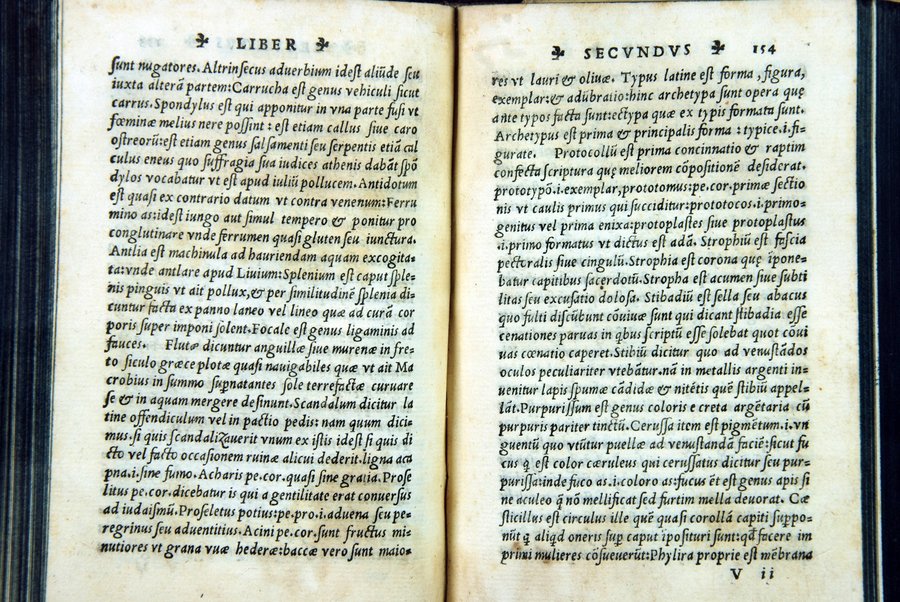 LIBER
sunt nugatores. Altrinsecus aduerbium idest aliūde seu
iuxta alterā partem: Carrucha est genus vehiculi sicut
carrus. Spondylus est qui apponitur in vna parte fusi vt
fœminæ melius nere possint : est etiam callus siue caro
ostreorū: est etiam genus salsamenti seu serpentis etiā cal
culus eneus quo suffragia sua iudices athenis dabāt spō
dylos vocabatur vt est apud iuliū pollucem. Antidotum
est quasi ex contrario datum vt contra venenum: Ferru
mino as: idest iungo aut simul tempero & ponitur pro
conglutinare vnde ferrumen quasi gluten seu iunctura.
Antlia est machinula ad hauriendam aquam excogita-
ta: vnde antlare apud Liuium: Splenium est caput sple-
nis pinguis vt ait pollux, & per similitudinē splenia di-
cuntur facta ex panno laneo vel lineo quæ ad curā cor
poris super imponi solent. Focale est genus ligaminis ad
fauces. Flutæ dicuntur anguillæ siue murenæ in fre-
to siculo græce plotæ quasi nauigabiles quæ vt ait Ma
crobius in summo supnatantes sole terrefactæ curuare
se & in aquam mergere desinunt. Scandalum dicitur la
tine offendiculum vel in pactio pedis: nam quum dici-
mus. si quis scandalizauerit vnum ex istis idest si quis di
cto vel facto occasionem ruinæ alicui dederit. ligna aca
pna .i. sine fumo. Acharis pe. cor. quasi sine gratia. Prose
litus pe. cor. dicebatur is qui a gentilitate erat conuersus
ad iudaismū. Proseletus potius: pe. pro. i. aduena seu pe-
regrinus seu aduentitius. Acini pe. cor. sunt fructus mi-
nutiores vt grana vuæ hederæ: baccæ vero sunt maio-
SECVNDVS 154
res vt lauri & oliuæ. Typus latine est forma, figura,
exemplar: & adūbratio: hinc archetypa sunt opera quę
ante typos facta sunt: ectypa quæ ex typis formata sunt.
Archetypus est prima & principalis forma : typice .i. fi-
gurate. Protocollū est prima concinnatio & raptim
confecta scriptura quę meliorem cōpositionē desiderat.
prototypō .i. exemplar, prototomus: pe. cor. primæ sectio
nis vt caulis primus qui succiditur: prototocos .i. primo-
genitus vel prima enixa: protoplastes siue protoplastus
.i. primo formatus vt dictus est adā. Strophiū est fascia
pectoralis siue cingulū. Strophia est corona quę īpone-
batur capitibus sacerdotū. Stropha est acumen siue subti
litas seu excusatio dolosa. Stibadiū est sella seu abacus
quo fulti discūbunt cōuiuæ sunt qui dicant stibadia esse
cenationes paruas in q̄bus scriptū esse solebat quot cōui
uas cœnatio caperet. Stibiū dicitur quo ad venustādos
oculos peculiariter vtebātur. nā in metallis argenti in-
uenitur lapis spumæ cādidæ & nitētis quē stibiū appel-
lāt. Purpurissum est genus coloris e creta argētaria cū
purpuris pariter tinctū. Cerussa item est pigmētum .i. vn
guentū quo vtūtur puellæ ad venustandā faciē: sicut fu
cus q̄ est color cæruleus qui cerussatus dicitur seu pur-
purissa: inde fuco as. i. coloro as: fucus ēt est genus apis si
ne aculeo q̄ nō mellificat sed furtim mella deuorat. Cæ
sticillus est circulus ille quē quasi corollā capiti suppo-
nūt q̄ aliqd oneris sup caput īposituri sunt: qd̄ facere im
primi mulieres cōsueuerūt: Phylira proprie est mēbrana
V ii